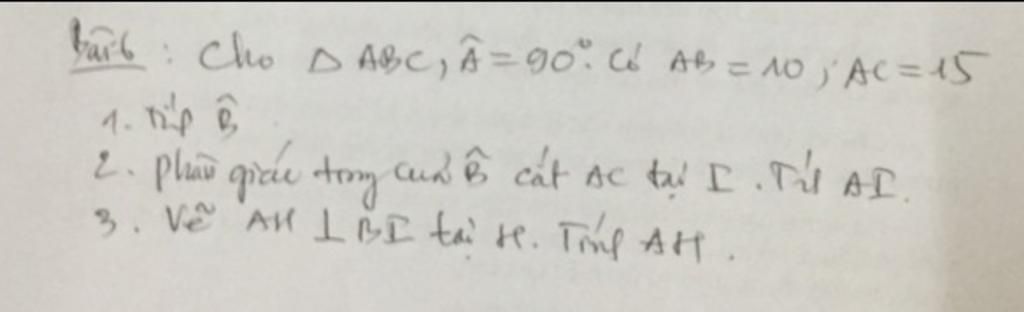 Bài 6 : Cho Δ ABC, Â = 90°. Có AB = 10 ; AC = 15
1. Tính B̂
2. Phân giác trong của B̂ cắt AC tại I. Tính AI.
3. Vẽ AH ⊥ BI tại H. Tính AH.